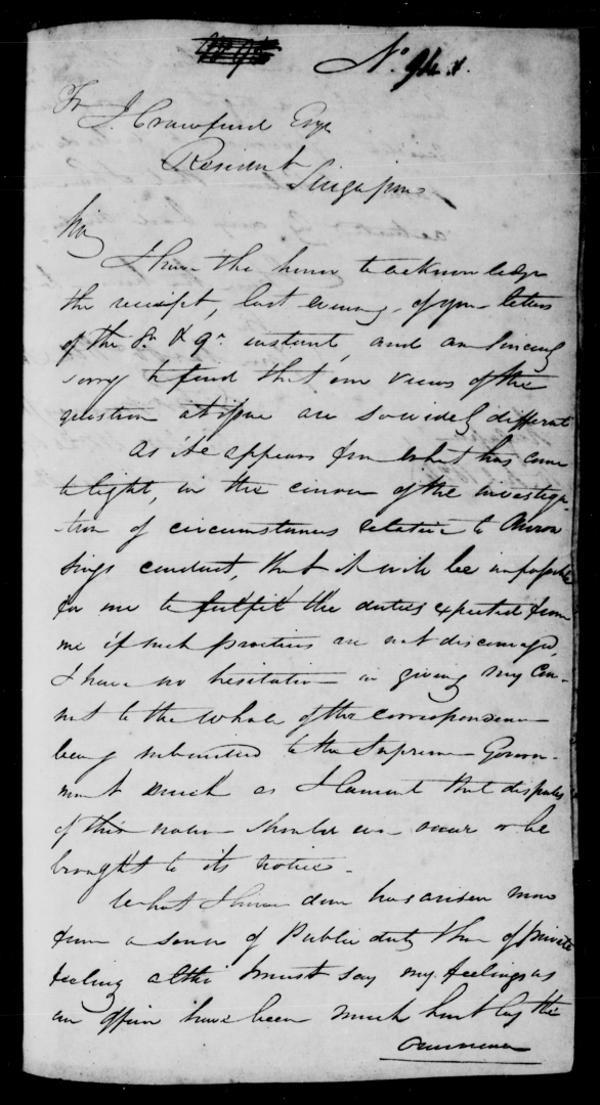 No. 94.
To
J. Crawfurd Esqr
Resident
Singapore
Sir
I have the honor to acknowledge
the receipt, last evening, of your letters
of the 8th & 9th instant, and am sincerely
sorry to find that our views of the
question at issue are so widely different
As it appears from what has come
to light, in the course of the investiga-
tion of circumstances relative to
Sings conduct, that it will be impossible
for me to fulfil the duties expected from
me if such practices are not discouraged,
I have no hesitation in giving my con-
sent to the whole of the correspondence
being submitted to the Supreme Govern-
ment much as I lament that disputes
of this nature should ever occur or be
brought to its notice.
What I have done has arisen more
from a sense of Public duty than of private
feeling altho' I must say my feelings as
an officer have been much hurt by the
occurrence